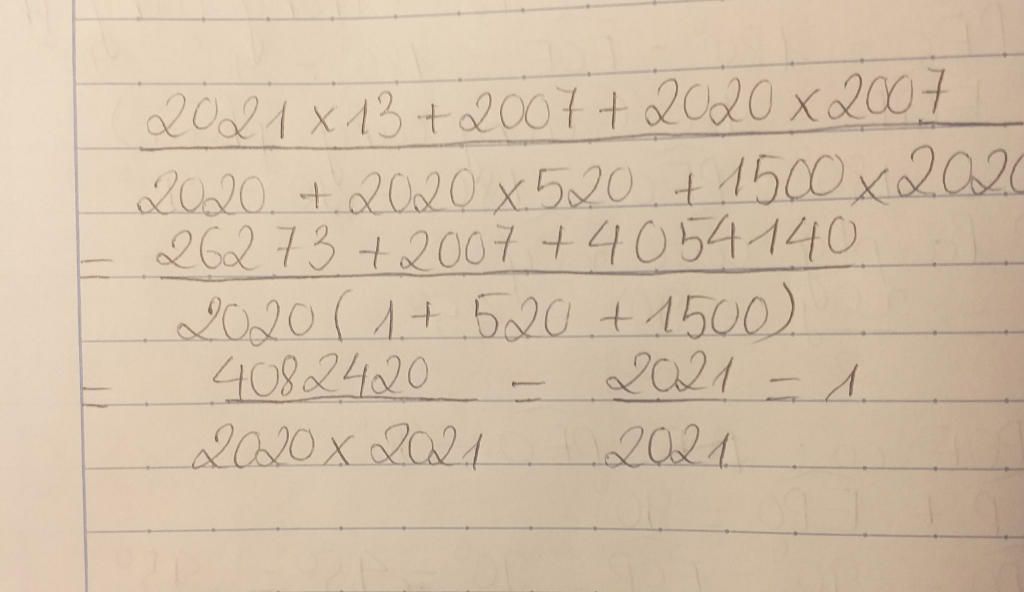 2021 x 13 + 2007 + 2020 x 2007
2020 + 2020 x 520 + 1500 x 2020
= 26273 + 2007 + 4054140
2020 ( 1 + 520 + 1500 )
= 4082420 = 2021 = 1
2020 x 2021 2021